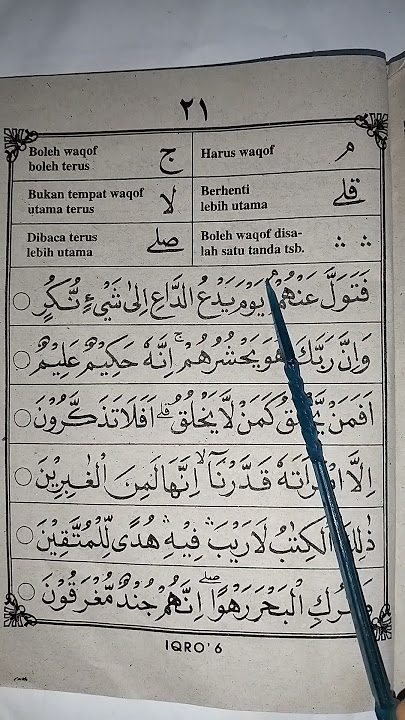 ٢١
Boleh waqof boleh terus ج Harus waqof م
Bukan tempat waqof utama terus لا Berhenti lebih utama قلے
Dibaca terus lebih utama صلے Boleh waqof disa- lah satu tanda tsb. ∴ ∴
فَتَوَلَّ عَنْهُمْ ۘ يَوْمَ يَدْعُ الدَّاعِ اِلٰى شَيْءٍ نُّكُرٍ
وَاِنَّ رَبَّكَ هُوَ يَحْشُرُهُمْ ۚ اِنَّهٗ حَكِيْمٌ عَلِيْمٌ
اَفَمَنْ يَّخْلُقُ كَمَنْ لَّا يَخْلُقُ ۗ اَفَلَا تَذَكَّرُوْنَ
اِلَّا امْرَاَتَهٗ قَدَّرْنَآ ۙ اِنَّهَا لَمِنَ الْغٰبِرِيْنَ
ذٰلِكَ الْكِتٰبُ لَا رَيْبَ ۛ فِيْهِ ۛ هُدًى لِّلْمُتَّقِيْنَ
الْبَحْرَ رَهْوًا ۖ اِنَّهُمْ جُنْدٌ مُّغْرَقُوْنَ
IQRO'6